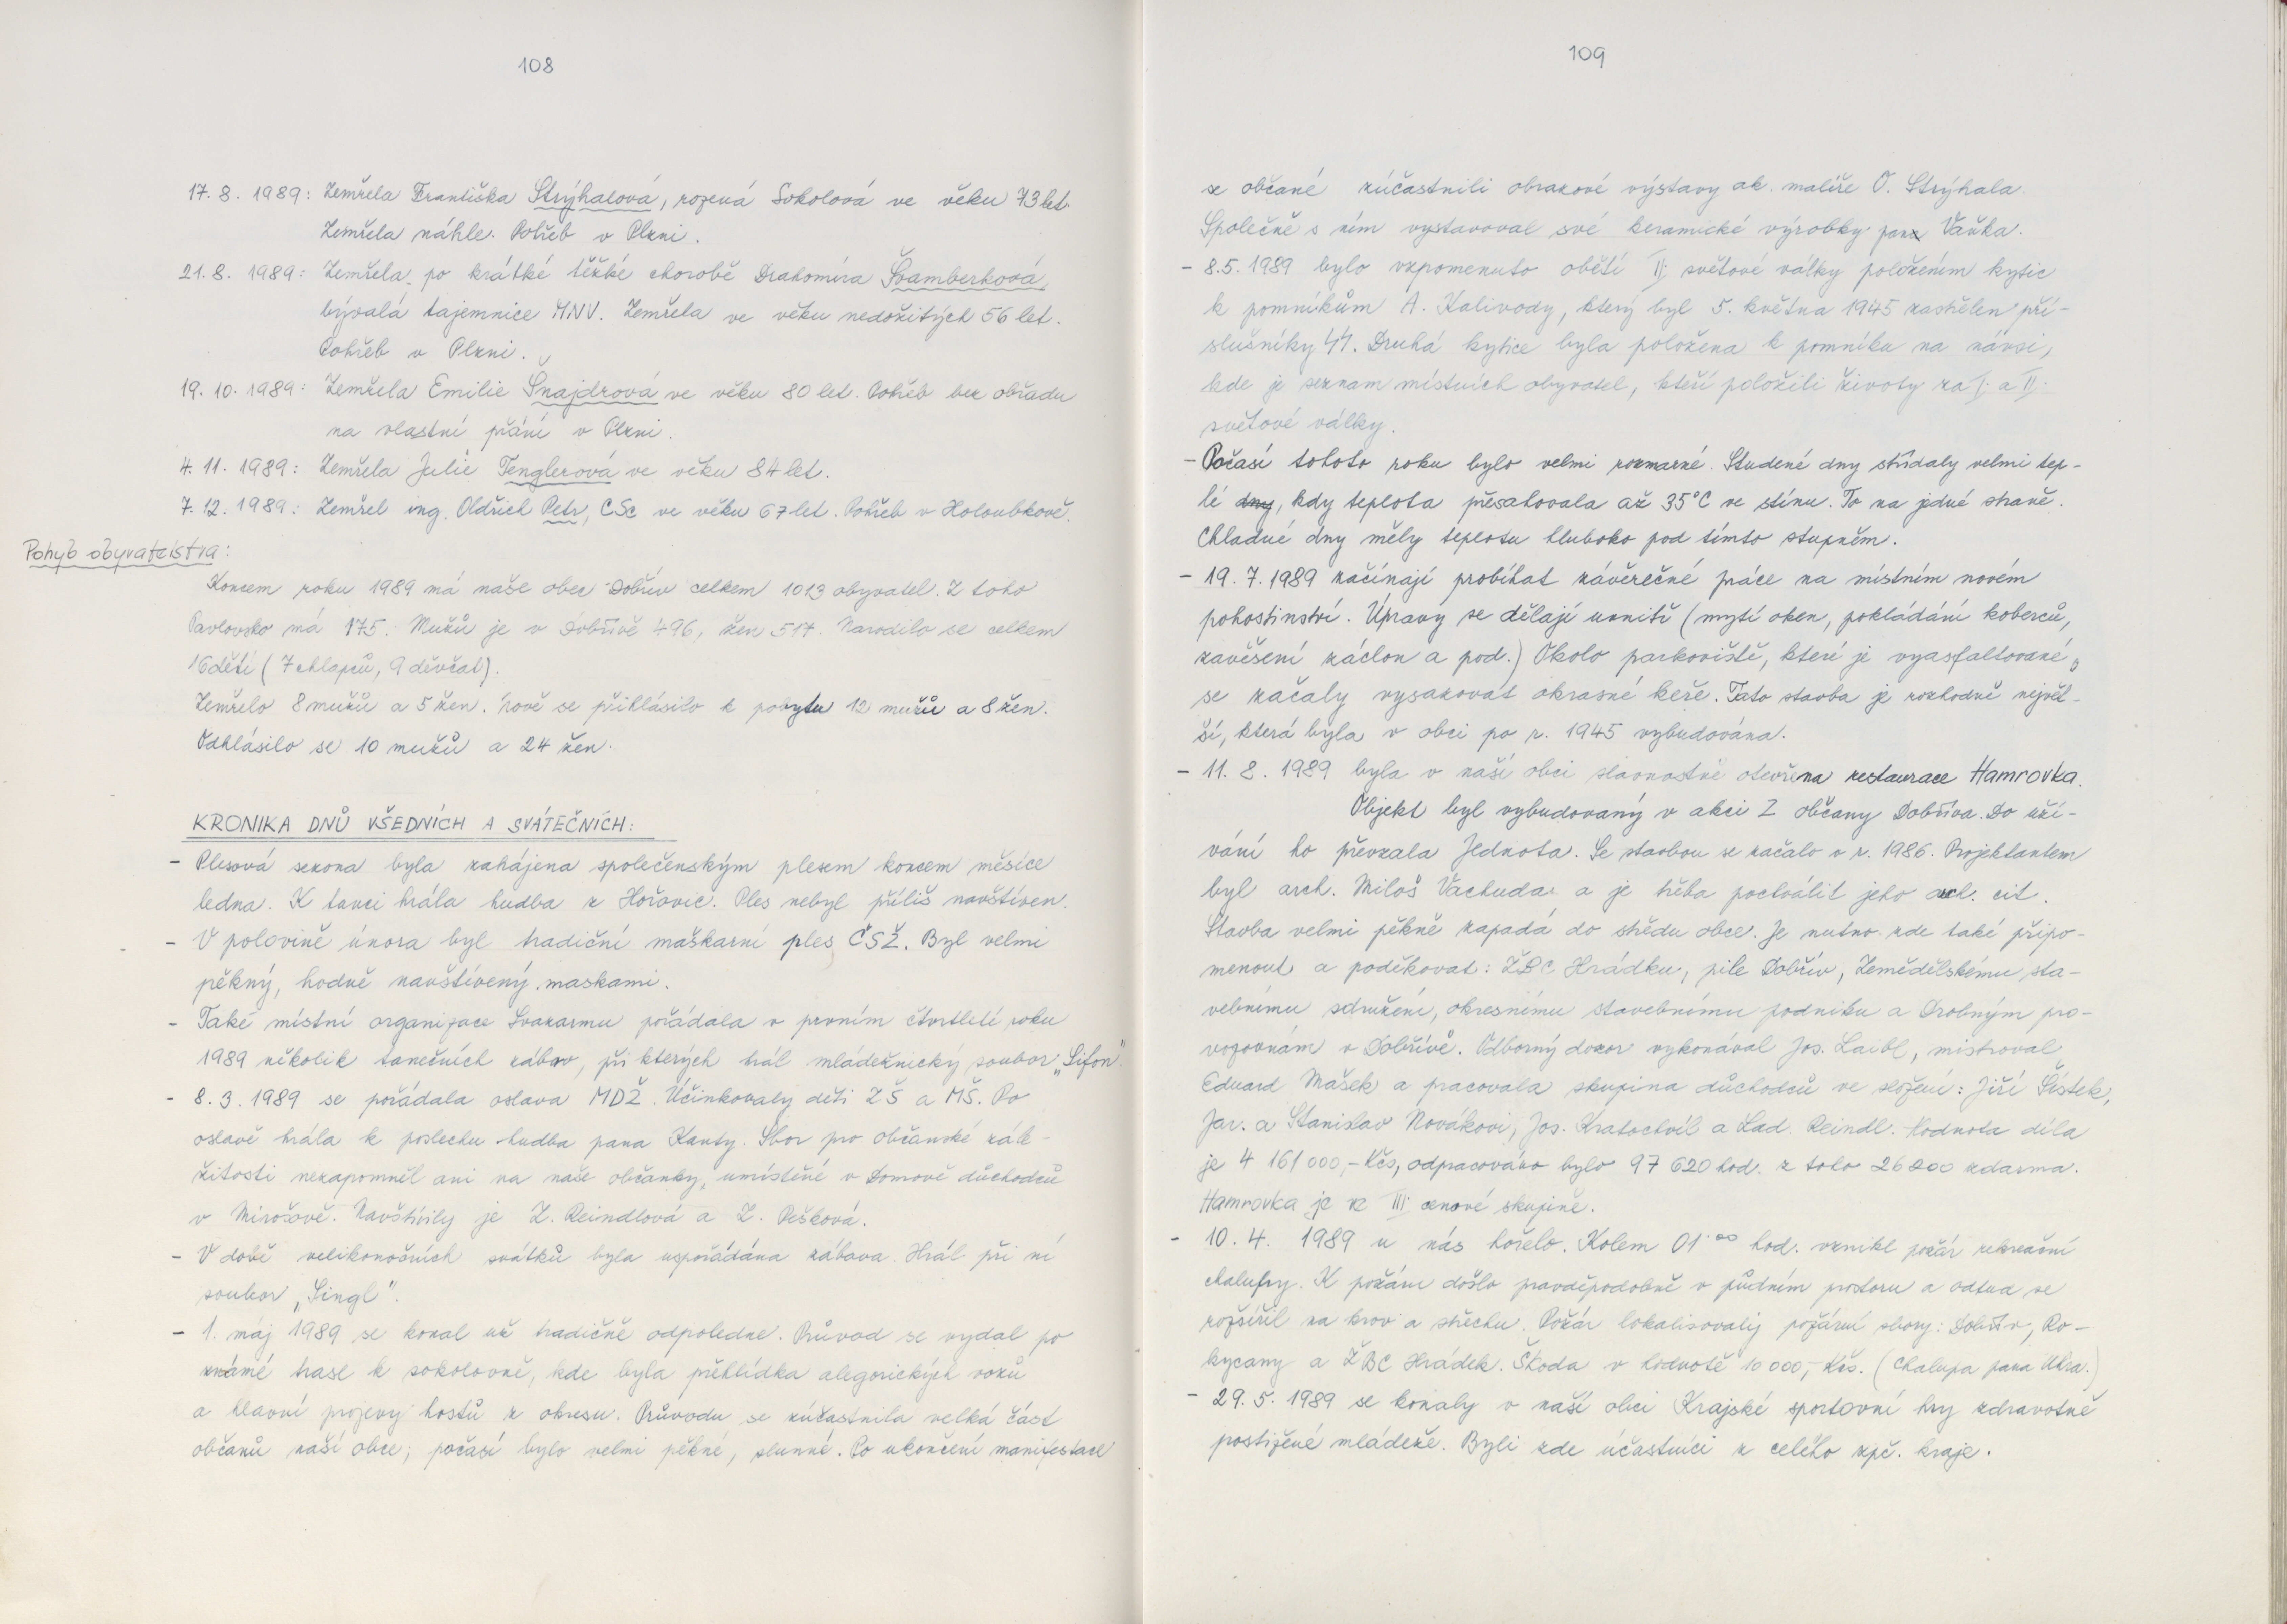 108
17. 8. 1989: Zemřela Františka Strýhalová, rozená Sokolová ve věku 73 let.
Zemřela náhle. Pohřeb v Plzni.
21. 8. 1989: Zemřela po krátké těžké chorobě Drahomíra Švamberková,
bývalá tajemnice MNV. Zemřela ve věku nedožitých 56 let.
Pohřeb v Plzni.
19. 10. 1989: Zemřela Emilie Šnajdrová ve věku 80 let. Pohřeb bez obřadu
na vlastní přání v Plzni.
4. 11. 1989: Zemřela Julie Tenglerová ve věku 84 let.
7. 12. 1989: Zemřel ing. Oldřich Petr, CSc ve věku 67 let. Pohřeb v Holoubkově.
Pohyb obyvatelstva:
Koncem roku 1989 má naše obec Dobřív celkem 1013 obyvatel. Z toho
Pavlovsko má 175. Mužů je v Dobřívě 496, žen 517. Narodilo se celkem
16 dětí (7 chlapců, 9 děvčat).
Zemřelo 8 mužů a 5 žen. Nově se přihlásilo k pobytu 12 mužů a 8 žen.
Odhlásilo se 10 mužů a 24 žen.
KRONIKA DNŮ VŠEDNÍCH A SVÁTEČNÍCH:
- Plesová sezona byla zahájena společenským plesem koncem měsíce
ledna. K tanci hrála hudba z Hořovic. Ples nebyl příliš navštíven.
- V polovině února byl tradiční maškarní ples ČSŽ. Byl velmi
pěkný, hodně navštívený maskami.
- Také místní organizace Svazarmu pořádala v prvním čtvrtletí roku
1989 několik tanečních zábav, při kterých hrál mládežnický soubor „Sifon".
- 8. 3. 1989 se pořádala oslava MDŽ. Účinkovaly děti ZŠ a MŠ. Po
oslavě hrála k poslechu hudba pana Kanty. Sbor pro občanské zále-
žitosti nezapomněl ani na naše občanky, umístěné v Domově důchodců
v Mirošově. Navštívily je Z. Reindlová a Z. Pešková.
- V době velikonočních svátků byla uspořádána zábava. Hrál při ní
soubor „Singl".
- 1. máj 1989 se konal už tradičně odpoledne. Průvod se vydal po
známé trase k sokolovně, kde byla přehlídka alegorických vozů
a hlavní projevy hostů z okresu. Průvodu se zúčastnila velká část
občanů naší obce; počasí bylo velmi pěkné, slunné. Po ukončení manifestace
109
se občané zúčastnili obrazové výstavy ak. malíře O. Strýhala.
Společně s ním vystavoval své keramické výrobky pan Vaňka.
- 8.5. 1989 bylo vzpomenuto obětí II. světové války položením kytic
k pomníkům A. Kalivody, který byl 5. května 1945 zastřelen pří-
slušníky SS. Druhá kytice byla položena k pomníku na návsi,
kde je seznam místních obyvatel, kteří položili životy za I. a II.
světové války.
- Počasí tohoto roku bylo velmi rozmarné. Studené dny střídaly velmi tep-
lé dny, kdy teplota přesahovala až 35°C ve stínu. To na jedné straně.
Chladné dny měly teplotu hluboko pod tímto stupněm.
- 19. 7. 1989 začínají probíhat závěrečné práce na místním novém
pohostinství. Úpravy se dělají uvnitř (mytí oken, pokládání koberců,
zavěšení záclon a pod.) Okolo parkoviště, které je vyasfaltované,
se začaly vysazovat okrasné keře. Tato stavba je rozhodně největ-
ší, která byla v obci po r. 1945 vybudována.
- 11. 8. 1989 byla v naší obci slavnostně otevřena restaurace Hamrovka.
Objekt byl vybudovaný v akci Z občany Dobříva. Do uží-
vání ho převzala Jednota. Se stavbou se začalo v r. 1986. Projektantem
byl arch. Miloš Vachuda a je třeba pochválit jeho arch. cit.
Stavba velmi pěkně zapadá do středu obce. Je nutno zde také připo-
menout a poděkovat: ŽBC Hrádku, pile Dobřív, Zemědělskému sta-
vebnímu sdružení, okresnímu stavebnímu podniku a Drobným pro-
vozovnám v Dobřívě. Odborný dozor vykonával Jos. Laibl, mistroval
Eduard Mašek a pracovala skupina důchodců ve složení: Jiří Šístek,
Jar. a Stanislav Novákovi, Jos. Kratochvíl a Lad. Reindl. Hodnota díla
je 4 161 000,- Kčs, odpracováno bylo 97 620 hod. z toho 26 200 zdarma.
Hamrovka je ve III. cenové skupině.
- 10. 4. 1989 u nás hořelo. Kolem 01.00 hod. vznikl požár rekreační
chalupy. K požáru došlo pravděpodobně v půdním prostoru a odtud se
rozšířil na krov a střechu. Požár lokalisovaly požární sbory: Dobřív, Ro-
kycany a ŽBC Hrádek. Škoda v hodnotě 10 000,- Kčs. (Chalupa pana)
- 29. 5. 1989 se konaly v naší obci Krajské sportovní hry zdravotně
postižené mládeže. Byli zde účastníci z celého zpč. kraje.